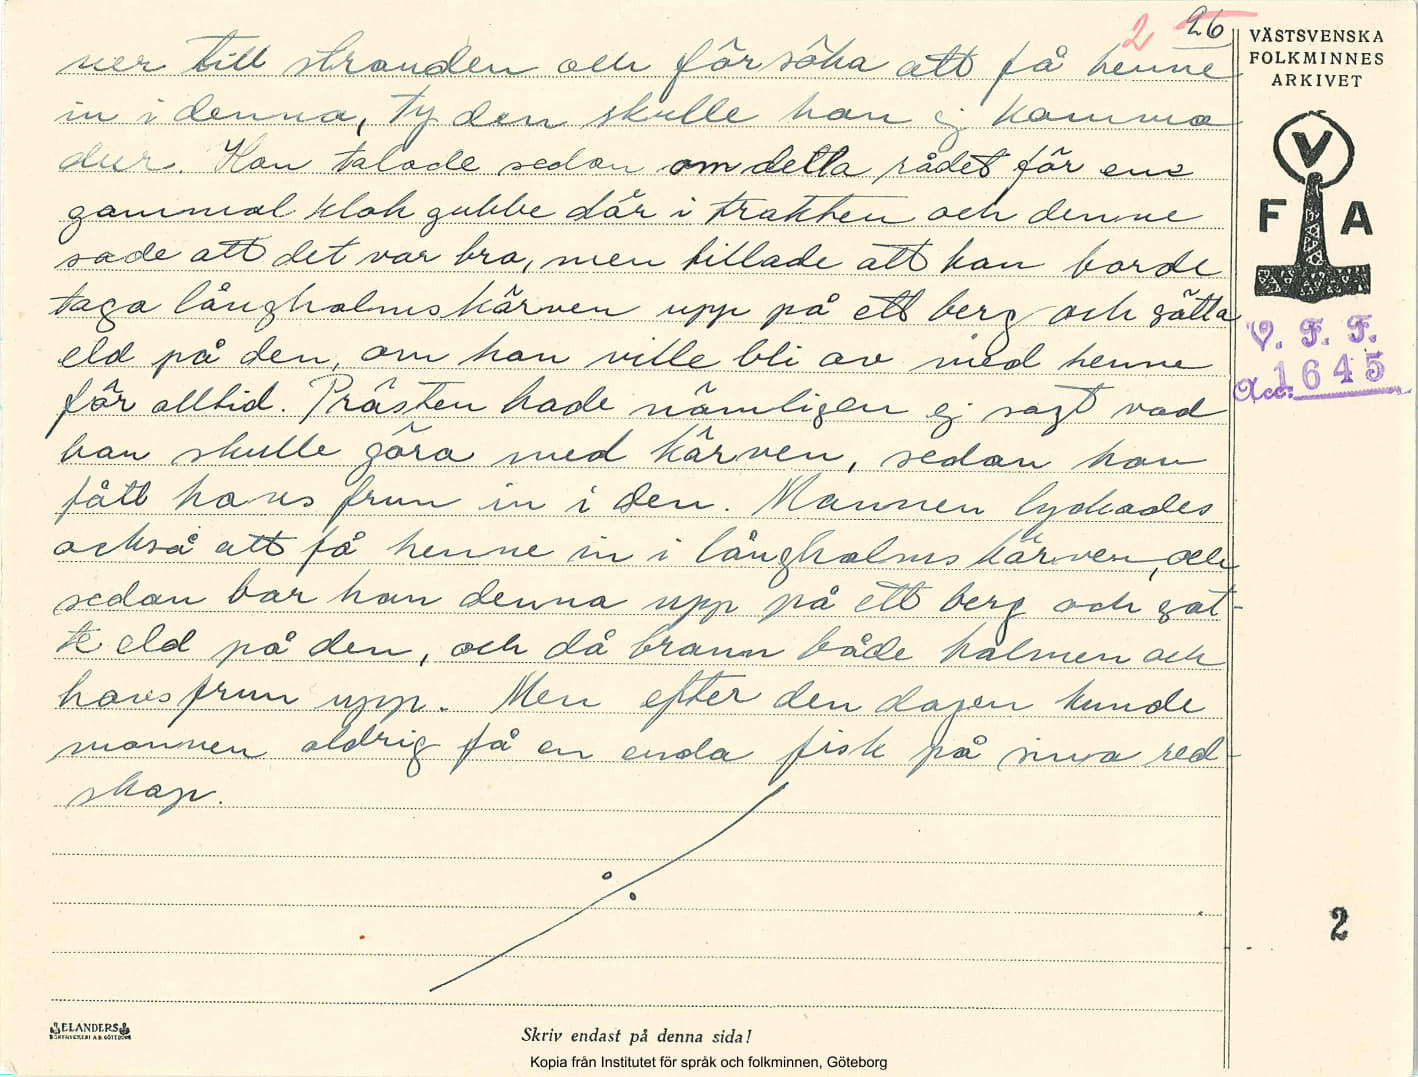 2 26
VÄSTSVENSKA
FOLKMINNES
ARKIVET
ner till stranden och försöka att få henne
in i denna, ty den skulle hon ej komma
dur. Han talade sedan om detta rådet för en
gammal klok gubbe där i trakten och denne
sade att det var bra, men tillade att han borde
taga långhalmskärven upp på ett berg och sätta
eld på den, om han ville bli av med henne
för alltid. Prästen hade nämligen ej sagt vad
han skulle göra med kärven, sedan han
fått havsfrun in i den. Mannen lyckades
också att få henne in i långhalmskärven, och
sedan bar han denna upp på ett berg och sat-
te eld på den, och då brann både halmen och
havsfrun upp. Men efter den dagen kunde
mannen aldrig få en enda fisk på sina red-
skap.
V
F A
V. F. F.
Acc. 1645
2
ELANDERS
BOKTRYCKERI A.B. GÖTEBORG
Skriv endast på denna sida!
Kopia från Institutet för språk och folkminnen, Göteborg